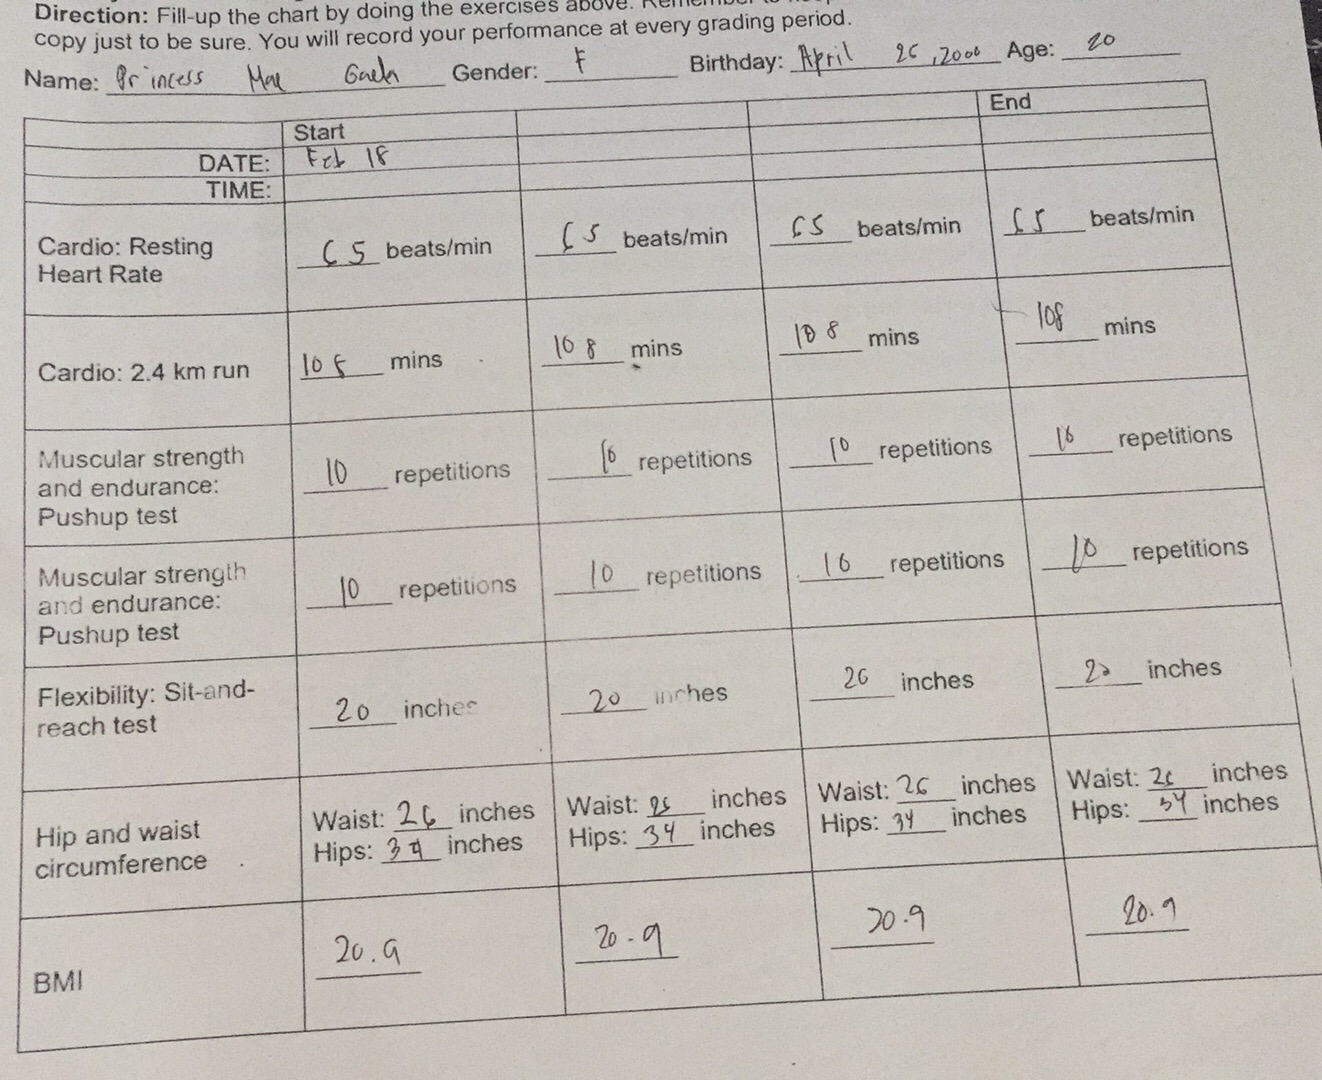 Direction: Fill-up the chart by doing the exercises above.
copy just to be sure. You will record your performance at every grading period.
Name: Princess Mae Gender: F Birthday: April 26, 2000 Age: 20
Start End
DATE: Feb 18
TIME:
Cardio: Resting Heart Rate 65 beats/min 65 beats/min 65 beats/min 65 beats/min
Cardio: 2.4 km run 108 mins 108 mins 108 mins 108 mins
Muscular strength
and endurance: 10 repetitions 10 repetitions 10 repetitions 10 repetitions
Pushup test
Muscular strength
and endurance: 10 repetitions 10 repetitions 10 repetitions 10 repetitions
Pushup test
Flexibility: Sit-and-
reach test 20 inches 20 inches 20 inches 20 inches
Hip and waist
circumference
Waist: 26 inches Waist: 26 inches Waist: 26 inches Waist: 26 inches
Hips: 34 inches Hips: 34 inches Hips: 34 inches Hips: 34 inches
BMI 20.9 20.9 20.9 20.9